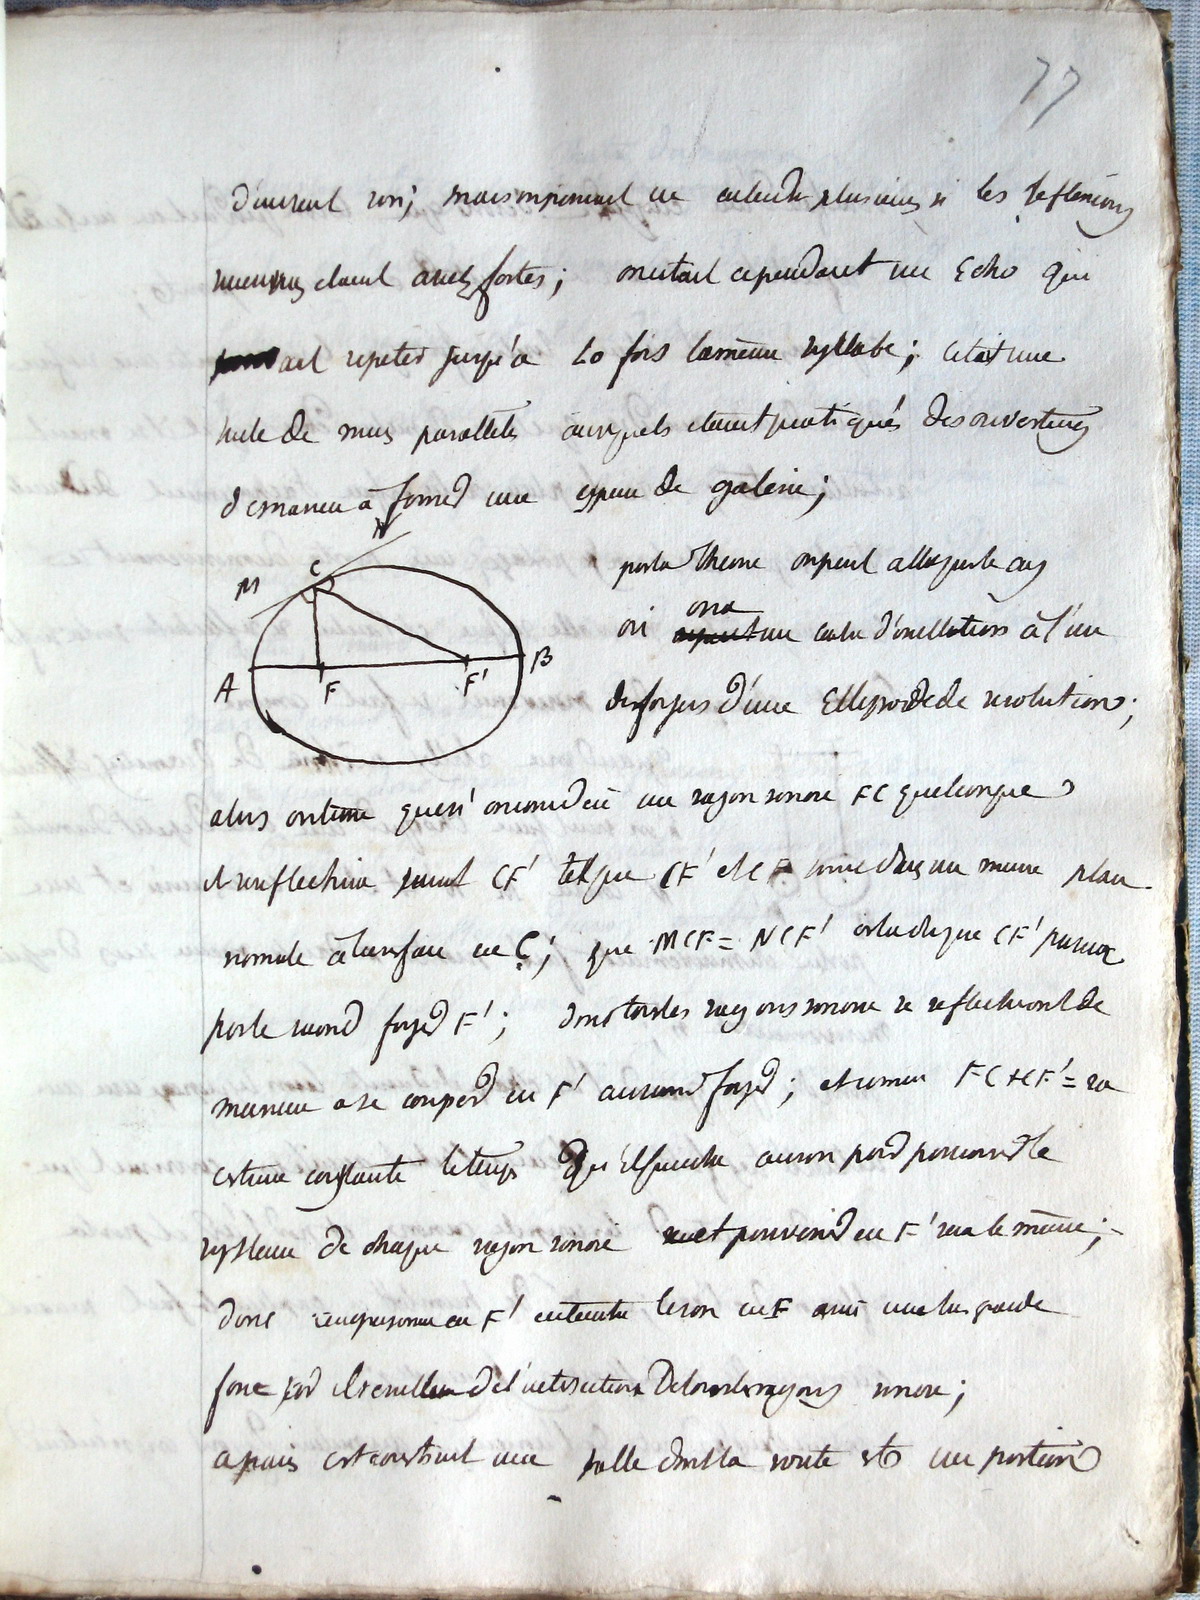 77
d'un seul son; mais on peut en entendre plusieurs si les reflexions
sont assez fortes; on citait cependant un Echo qui
repeter jusqu'a 20 fois la même syllabe; c'etait une
suite de murs paralleles auxquels etaient pratiqués des ouvertures
de maniere à former une espece de galerie;
N
C
M
A
B
F
F'
par la Theorie on peut
où on a un centre d'oscillations à l'un
des foyers d'une Ellipsoïde de revolution;
alors on trouve que si on considere un rayon sonore FC quelconque
il se reflechira suivant CF' tel que CF' et CF soient dans un meme plan
normale à la surface en C; que MCF = NCF' c'est a dire que CF' passera
par le second foyer F'; donc tous les rayons sonores se reflechiront de
maniere a se couper en F' au second foyer; et comme FC + CF' = 2a
est une constante le temps
systeme de chaque rayon sonore pour venir en F' sera le même;
donc une personne en F' entendra le son en F avec une tres grande
force de l'intersection de tous les rayons sonores;
a paris est construit une salle dont la voute est une portion